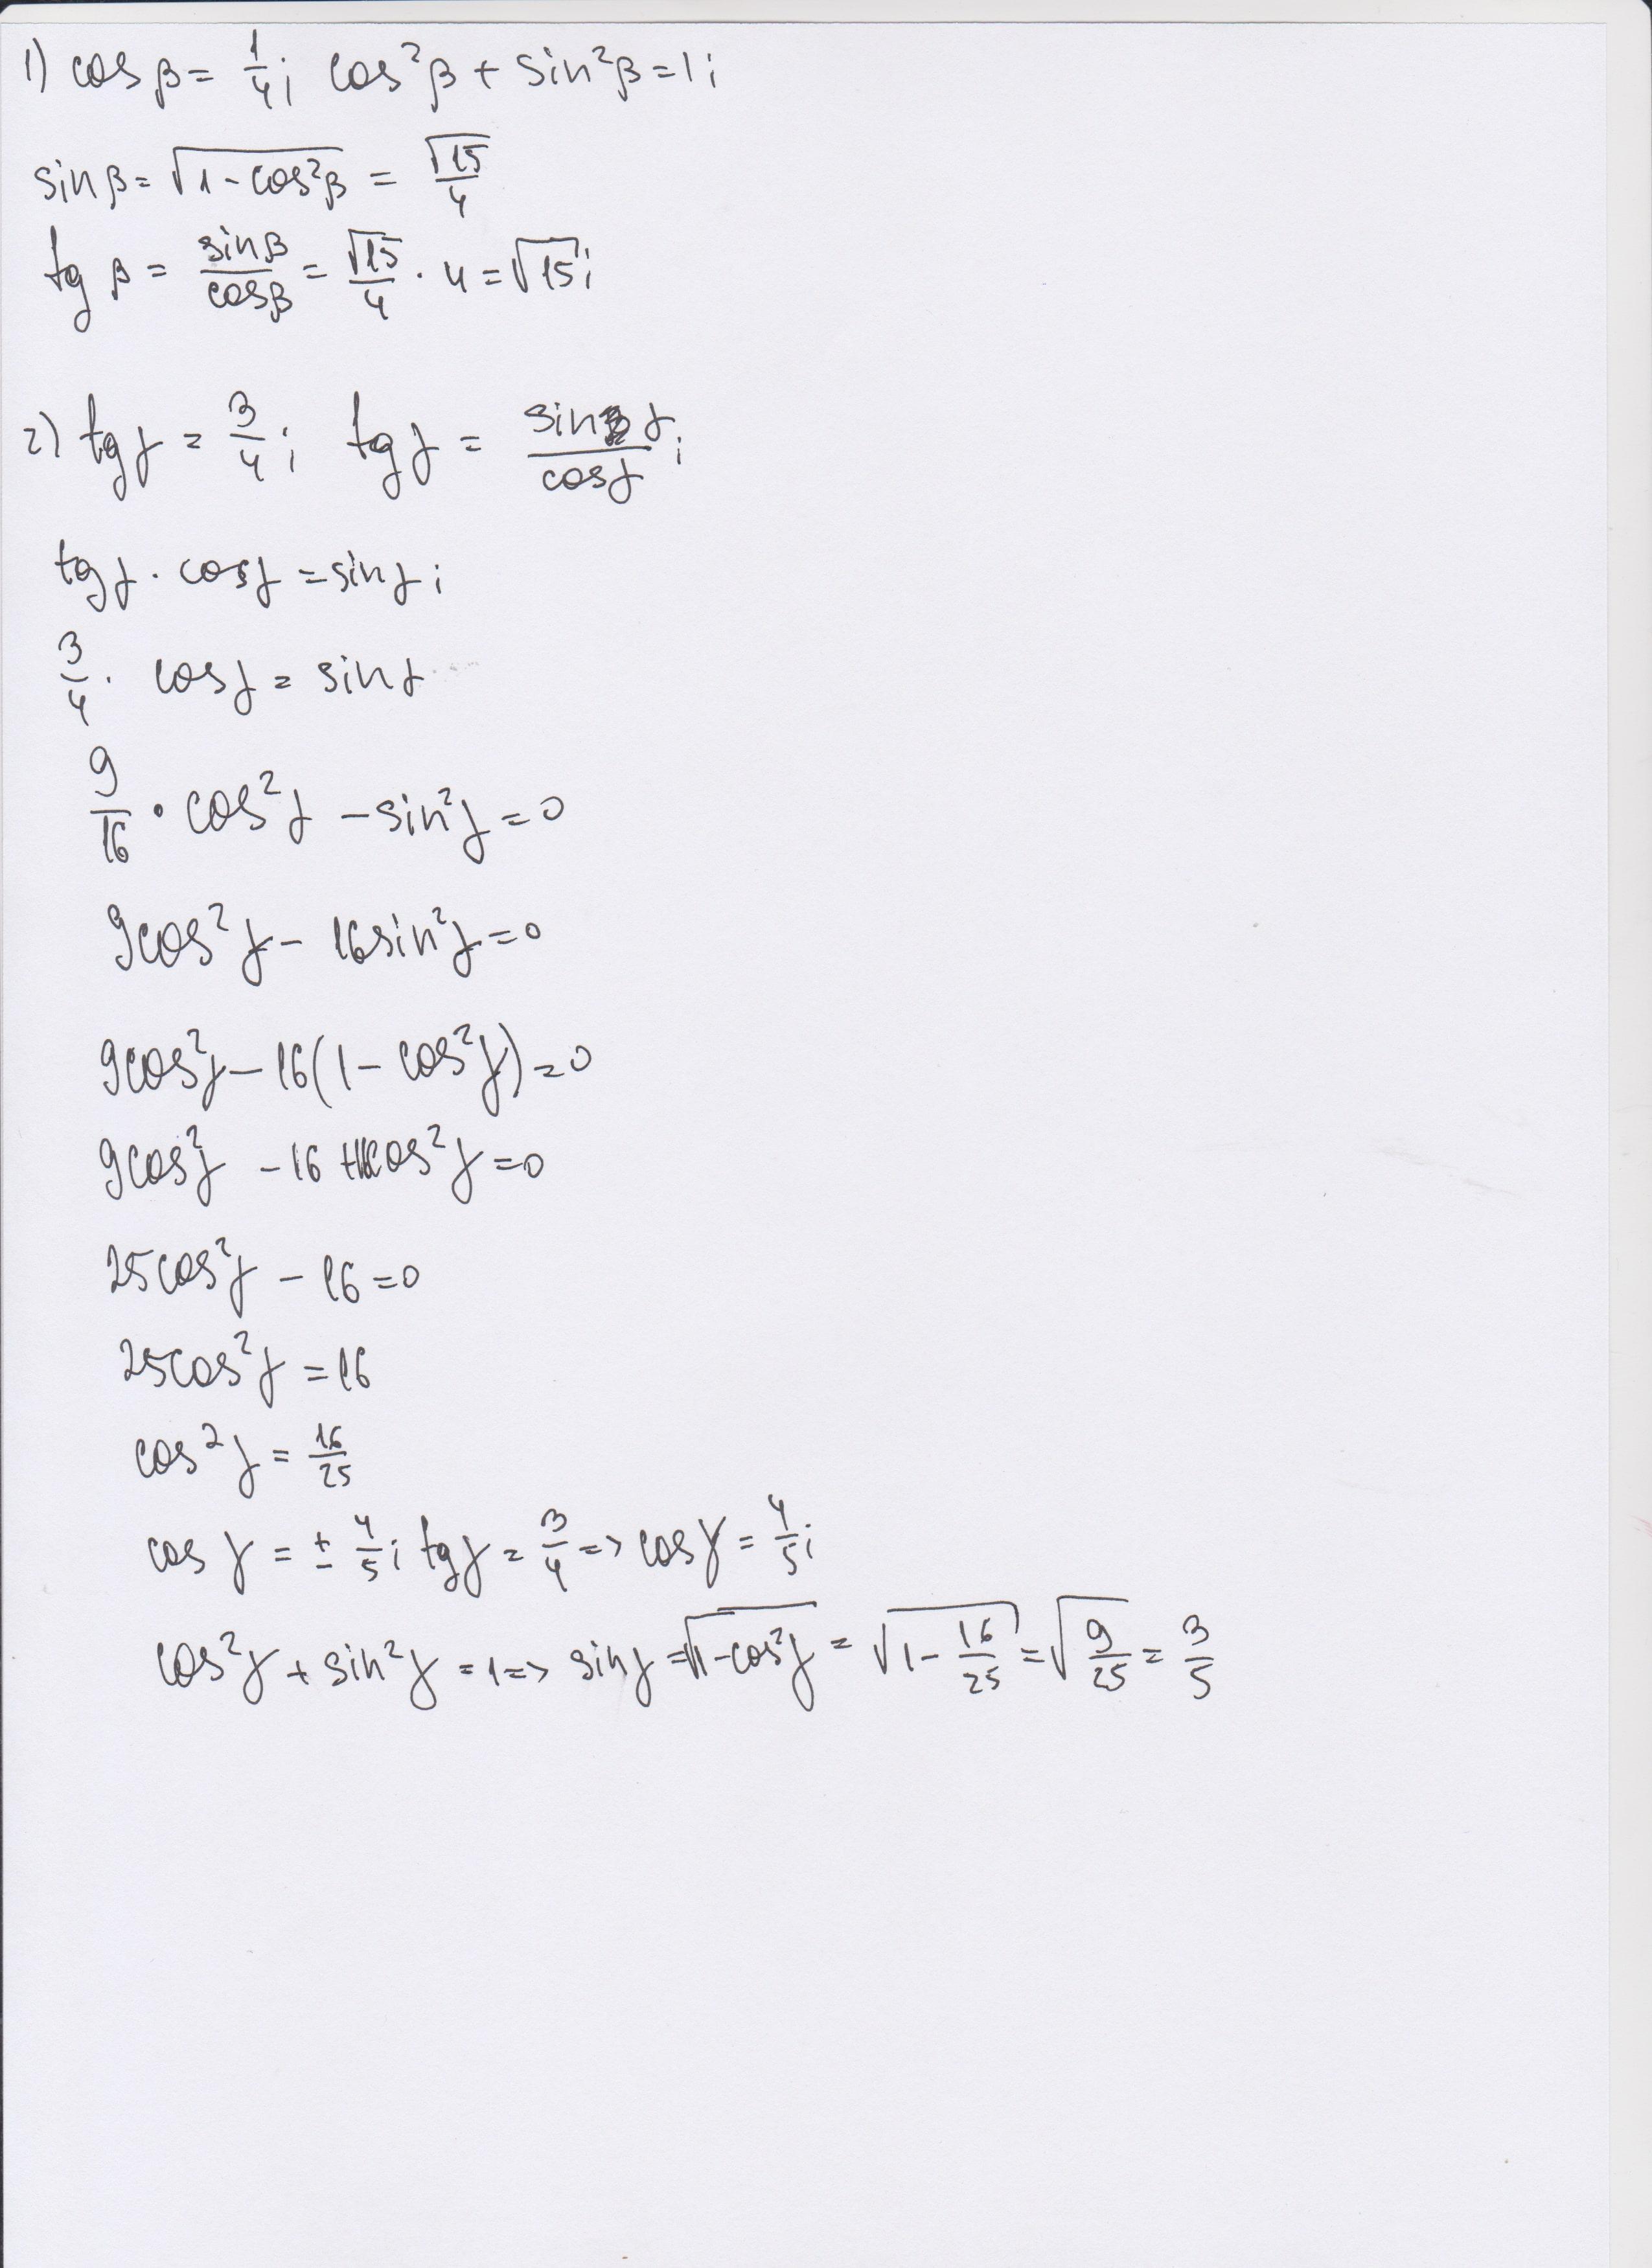 1) cos β = 1/4; cos²β + sin²β = 1;
sin β = √(1 - cos²β) = √15/4
tg β = sin β/cos β = √15/4 · 4 = √15;
2) tg γ = 3/4; tg γ = sin γ/cos γ;
tg γ · cos γ = sin γ;
3/4 · cos γ = sin γ
9/16 · cos²γ - sin²γ = 0
9cos²γ - 16sin²γ = 0
9cos²γ - 16(1 - cos²γ) = 0
9cos²γ - 16 + 16cos²γ = 0
25cos²γ - 16 = 0
25cos²γ = 16
cos²γ = 16/25
cos γ = ± 4/5; tg γ = 3/4 => cos γ = 4/5;
cos²γ + sin²γ = 1 => sin γ = √(1 - cos²γ) = √(1 - 16/25) = √(9/25) = 3/5